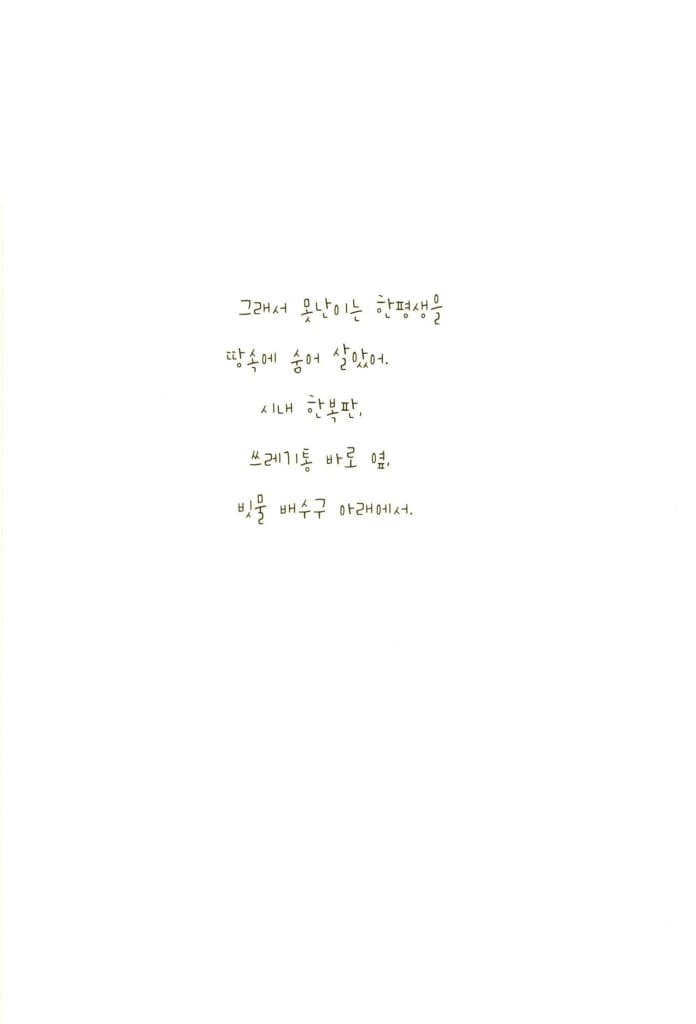 그래서 못난이는 한평생을
땅속에 숨어 살았어.
시내 한복판,
쓰레기통 바로 옆,
빗물 배수구 아래에서.